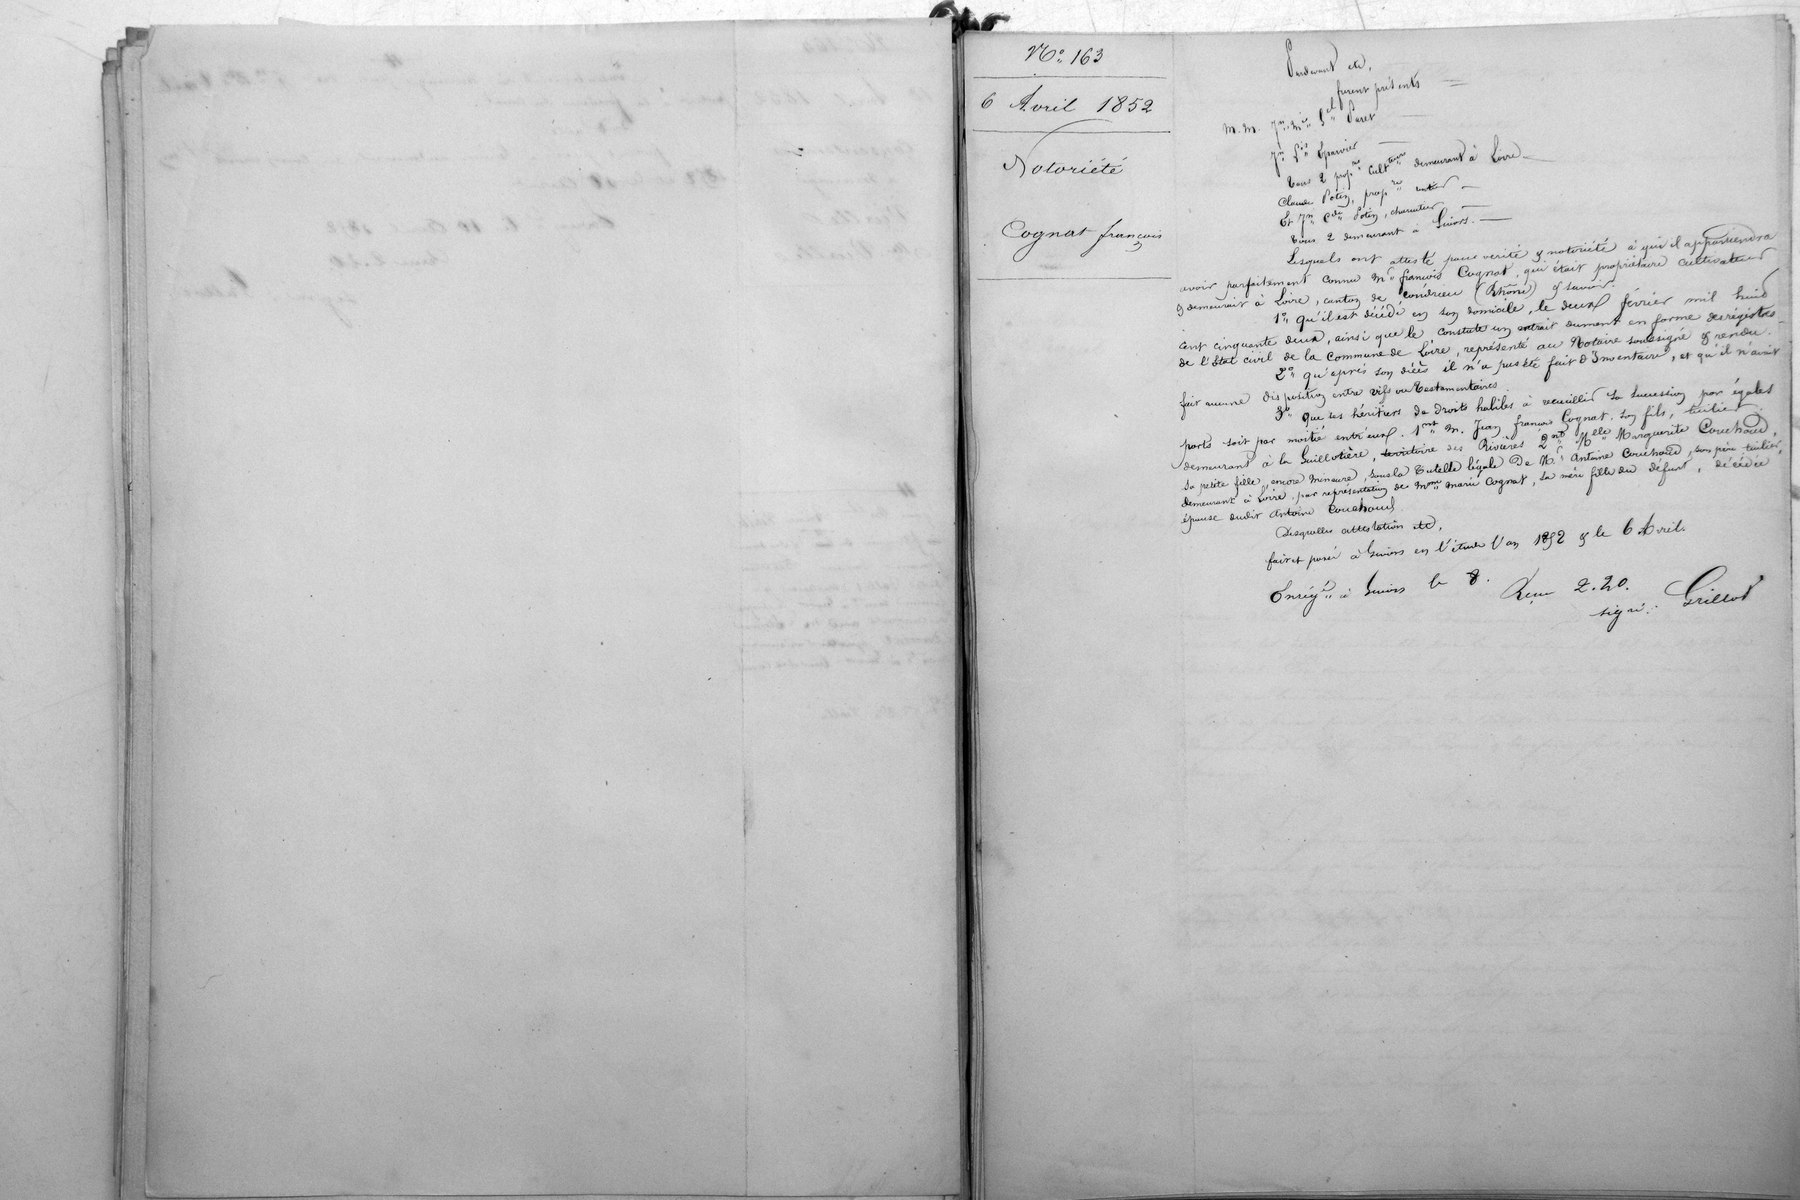 N° 163
6 Avril 1852
Notoriété
Cognat françois
Pardevant etc,
furent présents
M.M. Jn Mie Paret
Jn Fois Eparvier
tous 2 propres cultteurs demeurant à Loire
Claude Potin, propre rentier
Et Jn Cde Potin, charcutier
tous 2 demeurant à Givors.
Lesquels ont attesté pour vérité & notoriété à qui il appartiendra
avoir parfaitement connu Mr françois Cognat, qui était propriétaire cultivateur
& demeurait à Loire, canton de Condrieu (Rhône) & savoir.
1° qu'il est décédé en son domicile, le deux février mil huit
cent cinquante deux, ainsi que le constate un extrait dument en forme des régistres
de l'état civil de la Commune de Loire, représenté au Notaire soussigné & rendu.
2° qu'après son décès il n'a pas été fait d'Inventaire, et qu'il n'avait
fait aucune disposition entre vifs ou testamentaires.
3° que ses héritiers de droits habiles à recueillir sa succession par égales
parts soit par moitié entr'eux. 1ment M. Jean françois Cognat, son fils, tuilier
demeurant à la Guillotière, territoire des Rivières 2nt Melle Marguerite Couchoud,
sa petite fille, encore mineure, sous la tutelle légale De Mr Antoine Couchoud, son père tuilier,
demeurant à Loire, par représentation de Mme Marie Cognat, sa mère fille du défunt, décédée
épouse dudit Antoine Couchoud
Desquelles attestation etc,
fait et passé à Givors en l'étude l'an 1852 & le 6 Avril.
Enregé à Givors le 8. Reçu 2.20.
signé: Grillot